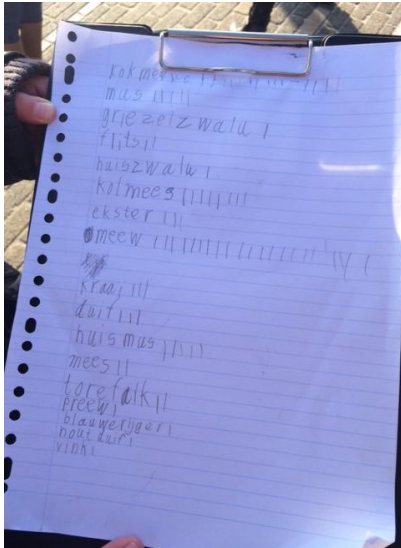 kokmeeuw | | | | | | | | | | | | |
mus | | | | |
griezelzwalu |
flits | |
huiszwalu |
kolmees | | | | | | | |
ekster | | |
meew | | | | | | | | | | | | | | | | | | | |
kraaj | | |
duif | | |
huismus | | | | |
mees | |
torefalk | |
preew |
blauwerijger |
houtduif |
vink |